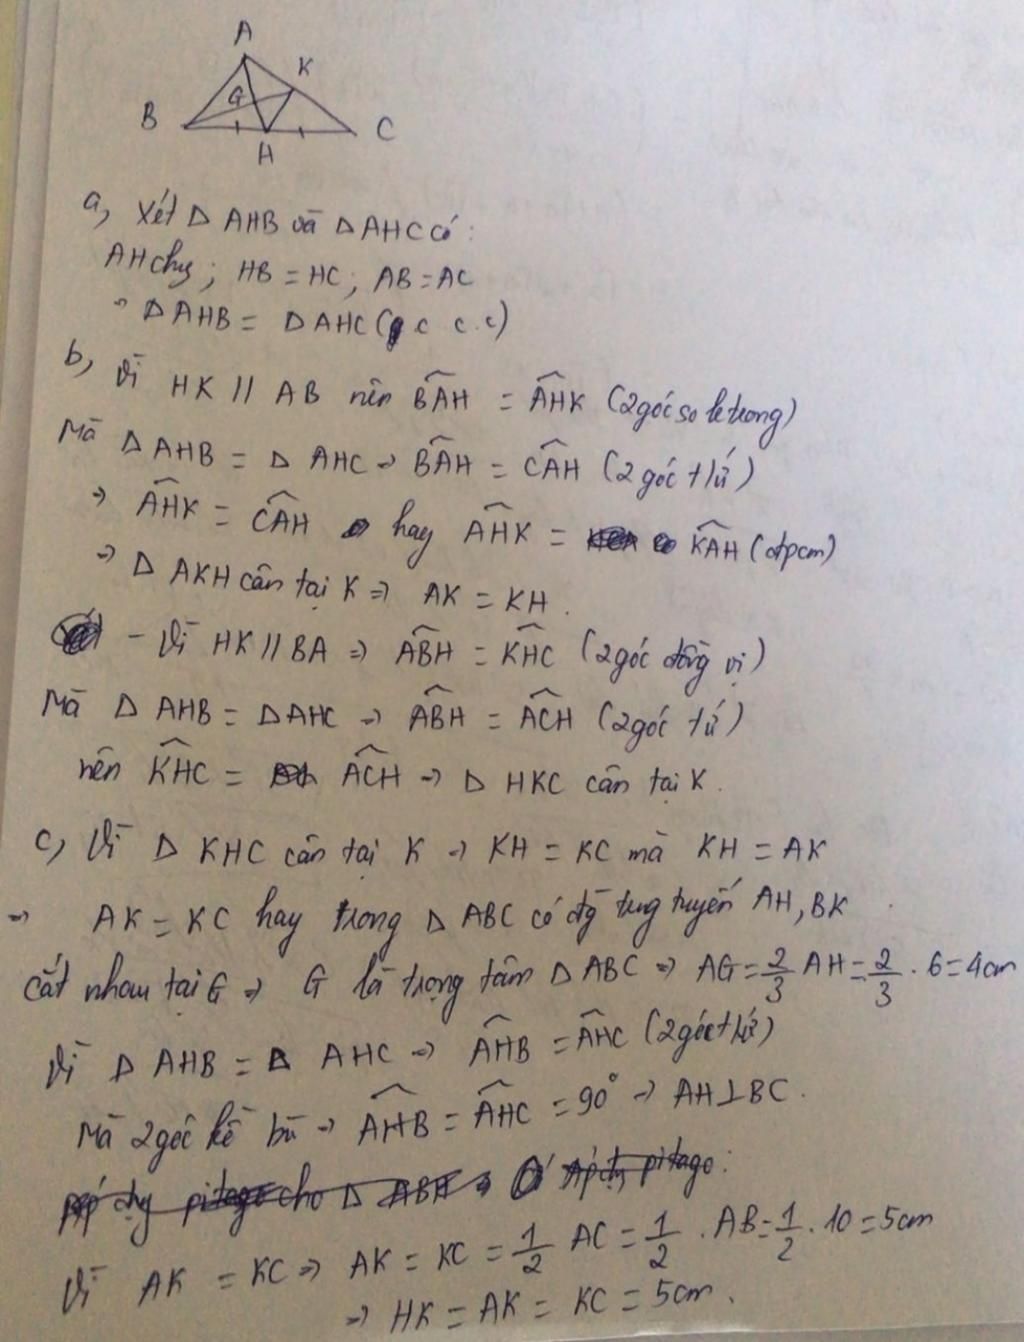 A
K
G
B
C
H
a, Xét Δ AHB và Δ AHC có:
AH chg; HB = HC; AB = AC
⇒ Δ AHB = Δ AHC (c c.c)
b, Vì HK // AB nên BÂH = AĤK (2 góc so le trong)
Mà Δ AHB = Δ AHC ⇒ BÂH = CÂH (2 góc t/ứ)
⇒ AĤK = CÂH hay AĤK = KÂH (đpcm)
⇒ Δ AKH cân tại K ⇒ AK = KH.
- Vì HK // BA ⇒ AB̂H = KĤC (2 góc đồng vị)
Mà Δ AHB = Δ AHC ⇒ AB̂H = AĈH (2 góc tứ)
nên KĤC = AĈH ⇒ Δ HKC cân tại K.
c, Vì Δ KHC cân tại K ⇒ KH = KC mà KH = AK
⇒ AK = KC hay trong Δ ABC có đg tung tuyến AH, BK
cắt nhau tại G ⇒ G là trọng tâm Δ ABC ⇒ AG = 2/3 AH = 2/3 . 6 = 4cm
Vì Δ AHB = Δ AHC ⇒ AĤB = AĤC (2 góc t/ứ)
Mà 2 góc kề bù ⇒ AĤB = AĤC = 90° ⇒ AH ⊥ BC.
Vì AK = KC ⇒ AK = KC = 1/2 AC = 1/2 . AB = 1/2 . 10 = 5cm
⇒ HK = AK = KC = 5cm.